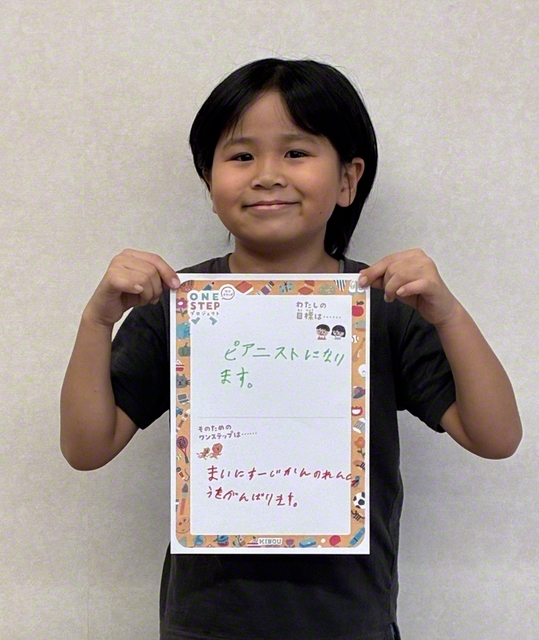 ONE
STEP
プロジェクト
わたしの
目標は……
ピアニストになり
ます。
そのための
ワンステップは……
まいにすーじかんのれんし
うをがんばります。
KIBOU